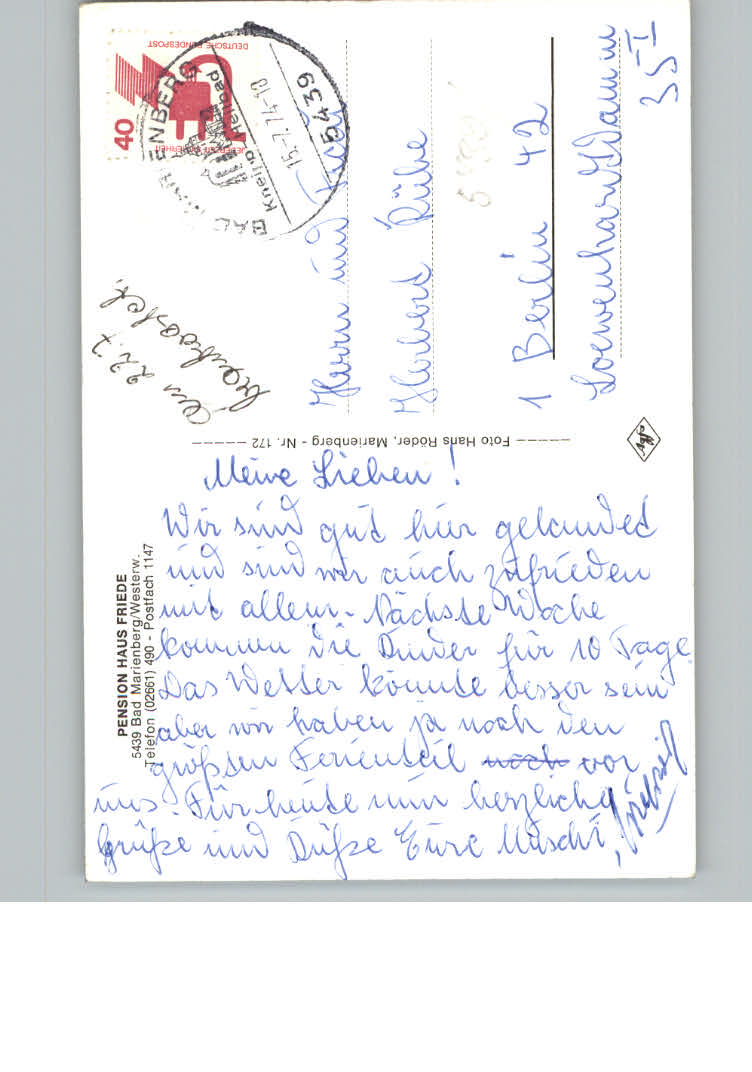 PENSION HAUS FRIEDE
5439 Bad Marienberg/Westerw.
Telefon (02661) 490 - Postfach 1147
Meine Lieben!
Wir sind gut hier gelandet
und sind wir auch zufrieden
mit allem. Nächste Woche
kommen die Kinder für 10 Tage
Das Wetter könnte besser sein
aber wir haben ja noch den
größten Ferienteil noch vor
uns. Für heute nur herzliche
Grüße und Küße Eure Uschi
Foto Hans Röder, Marienberg - Nr. 172
am 22.7.
beantwortet.
40
DEUTSCHE BUNDESPOST
JEDERZEIT SICHERHEIT
BAD MARIENBERG
Kneipp Heilbad
15.-7.74-10
5439
Herrn und Frau
Herbert Rübe
1 Berlin 42
Loewenhardtdamm
35 I